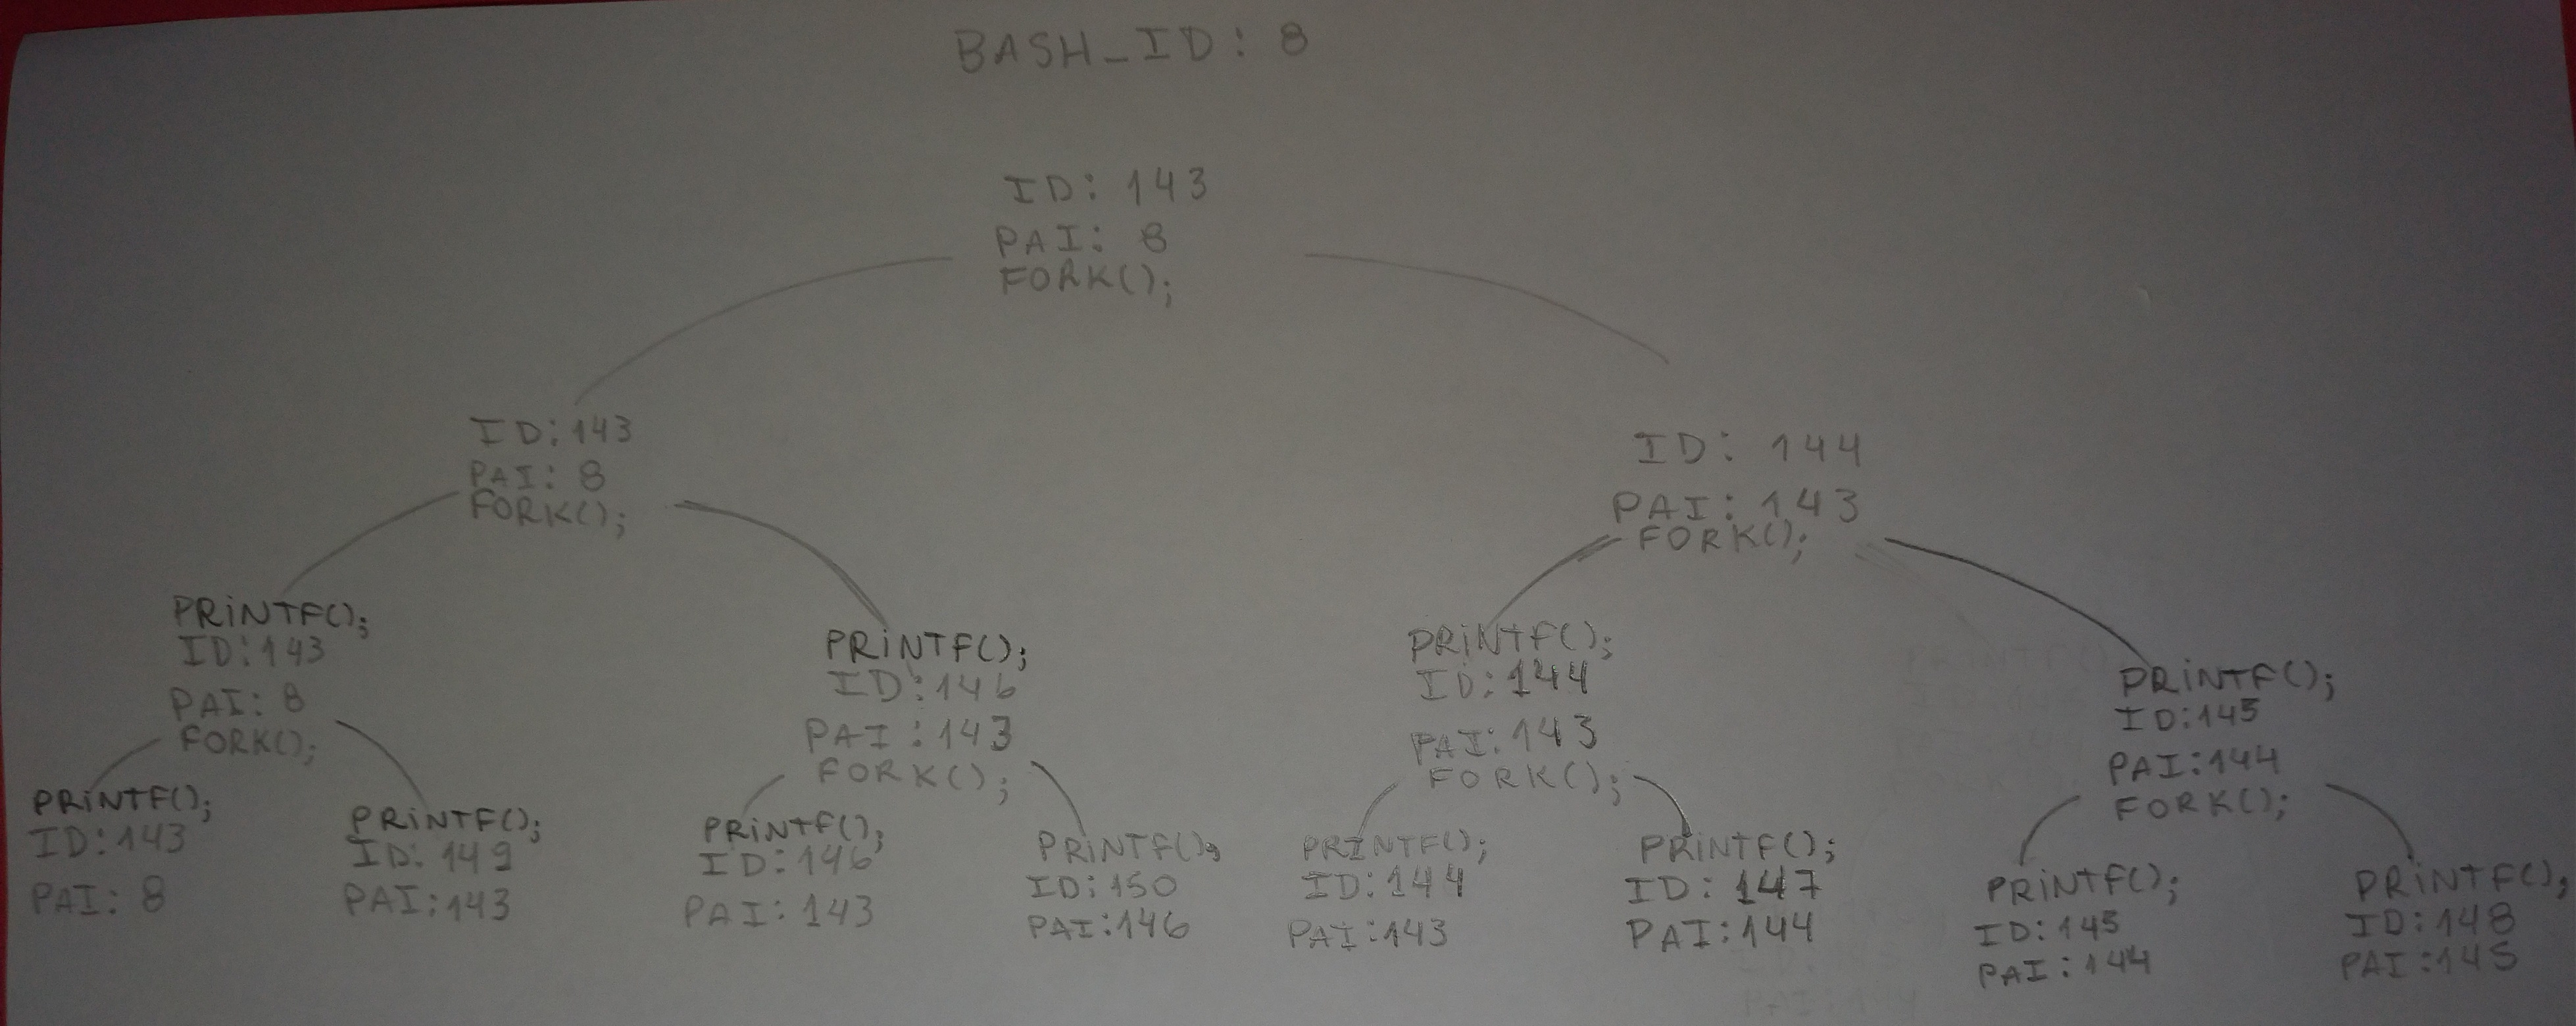 BASH_ID: 8
ID: 143
PAI: 8
FORK();
ID: 143
PAI: 8
FORK();
ID: 144
PAI: 143
FORK();
PRiNTF();
ID: 143
PAI: 8
FORK();
PRiNTF();
ID: 146
PAI: 143
FORK();
PRiNTF();
ID: 144
PAI: 143
FORK();
PRiNTF();
ID: 145
PAI: 144
FORK();
PRiNTF();
ID: 143
PAI: 8
PRiNTF();
ID: 149
PAI: 143
PRiNTF();
ID: 146
PAI: 143
PRiNTF();
ID: 150
PAI: 146
PRINTF();
ID: 144
PAI: 143
PRiNTF();
ID: 147
PAI: 144
PRiNTF();
ID: 145
PAI: 144
PRiNTF();
ID: 148
PAI: 145